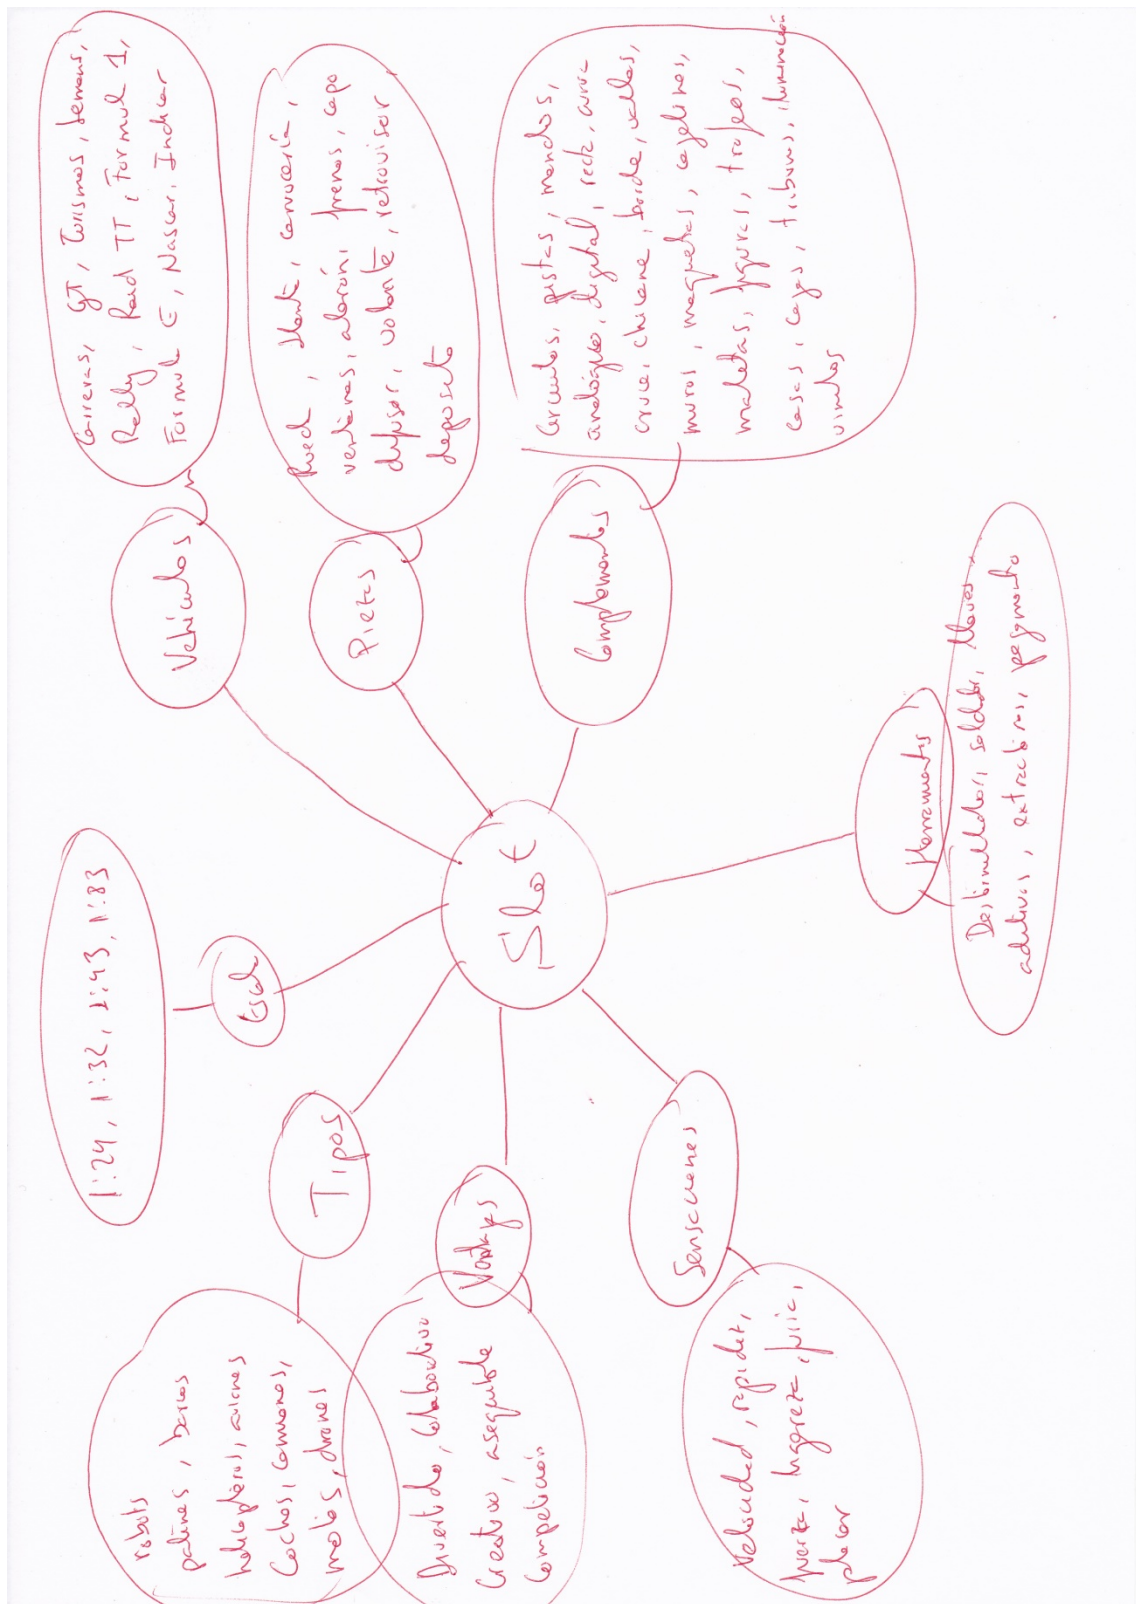 Slot
Vehículos
Carreras, GT, Turismos, Lemans,
Rally, Raid TT, Formul 1,
Formul E, Nascar, Indicar
Piezas
Rued, llanta, carrocería,
ventanas, alerón, frenos, capo
difusor, volante, retrovisor
deposito
Complementos
Circuitos, pistas, mandos,
analógico, digital, recta, curva
cruce, chicane, borde, vallas,
muros, maquetas, cajetines,
maletas, figuras, trofeos,
casas, cajas, tribunas, iluminación
vinilos
Herramientas
llaves,
aditivos, extractores, pegamento
Sensaciones
Velocidad, rapidez,
fuerza, furia,
placer
Ventajas
Divertido, Colaborativo
Creativo, asequible
Competición
Tipos
robots
patines, barcos
helicópteros, aviones
Coches, camiones,
motos, drones
Escala
1:24, 1:32, 1:43, 1:83